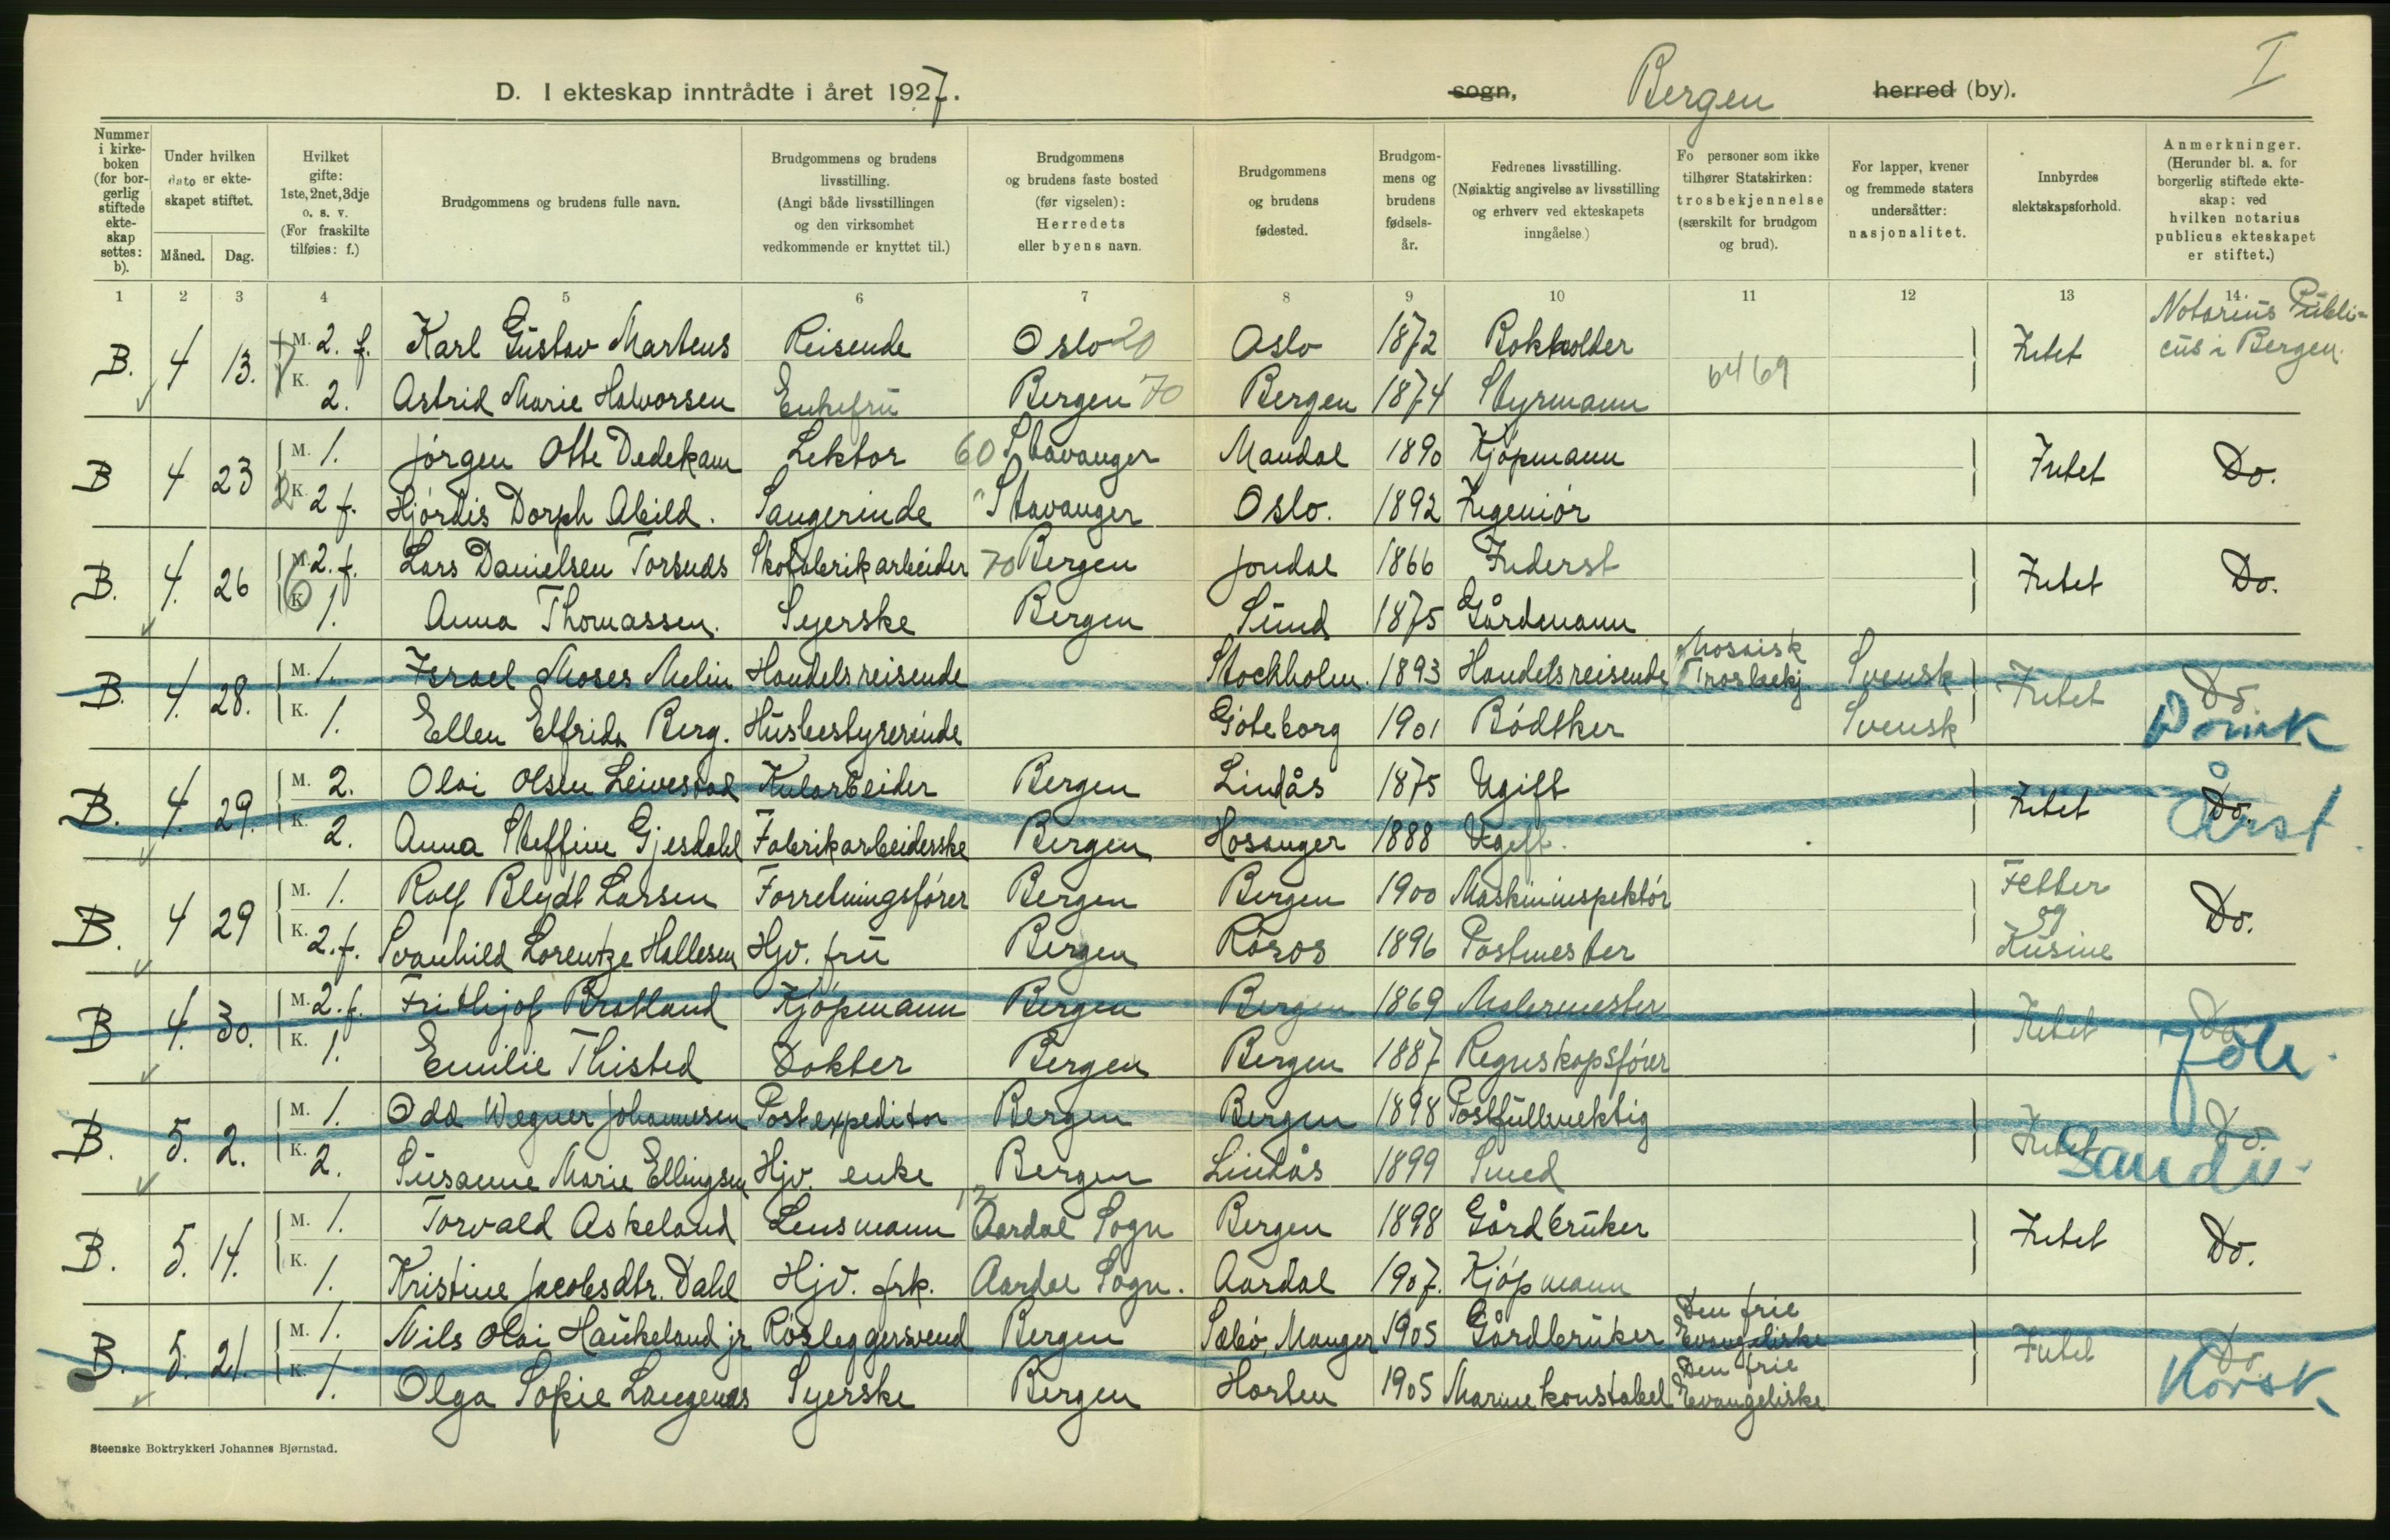 D. I ekteskap inntrådte i året 1927. sogn, Bergen herred (by). I
Nummer i kirke-boken (for bor-gerlig stiftede ekte-skap settes: b).
Under hvilken dato er ekte-skapet stiftet.
Måned. Dag.
Hvilket gifte: 1ste, 2net, 3dje o. s. v. (For fraskilte tilføies: f.)
Brudgommens og brudens fulle navn.
Brudgommens og brudens livsstilling. (Angi både livsstillingen og den virksomhet vedkommende er knyttet til.)
Brudgommens og brudens faste bosted (før vigselen): Herredets eller byens navn.
Brudgommens og brudens fødested.
Brudgom-mens og brudens fødsels-år.
Fedrenes livsstilling. (Nøiaktig angivelse av livsstilling og erhverv ved ekteskapets inngåelse)
Fo personer som ikke tilhører Statskirken: trosbekjennelse (særskilt for brudgom og brud).
For lapper, kvener og fremmede staters undersåtter: nasjonalitet.
Innbyrdes slektskapsforhold.
Anmerkninger. (Herunder bl. a. for borgerlig stiftede ekte-skap: ved hvilken notarius publicus ekteskapet er stiftet.)
1 2 3 4 5 6 7 8 9 10 11 12 13 14.
B. 4 13. M. 2. f. Karl Gustav Martens Reisende Oslo 20 Oslo 1872 Bokholder Intet Notarius Publi-cus i Bergen.
K. 2. Astrid Marie Halvorsen Enkefru Bergen 70 Bergen 1874 Styrmann 6469
B 4 23 M. 1. Jørgen Otto Dedekam Lektor 60 Stavanger Mandal 1890 Kjøpmann Intet Do.
K. 2 f. Hjørdis Dorph Abild. Sangerinde " Stavanger Oslo. 1892 Ingeniør
B. 4. 26 M. 2. f. Lars Danielsen Torsnes Skofabrikarbeider 70 Bergen Jondal 1866 Inderst Intet Do.
K. 1. Anna Thomassen. Syerske Bergen Sund 1875 Gårdmann
B. 4. 28. M. 1. Israel Moses Melin Handelsreisende Stockholm. 1893 Handelsreisende Mosaisk Trosbekj. Svensk Intet Do.
K. 1. Ellen Elfrida Berg. Husbestyrerinde Göteborg 1901 Bødtker Svensk Domk
B. 4. 29. M. 2. Olai Olsen Leivestad Kularbeider Bergen Lindås 1875 Ugift Intet Do. Årst
K. 2. Anna Steffine Gjesdahl Fabrikarbeiderske Bergen Hosanger 1888 Ugift.
B. 4 29 M. 1. Rolf Blydt Larsen Forretningsfører Bergen Bergen 1900 Maskininspektør Fetter og Kusine Do.
K. 2. f. Svanhild Lorentze Hallesen Hjv. fru Bergen Røros 1896 Postmester
B 4. 30. M. 2. f. Frithjof Bratland Kjøpmann Bergen Bergen 1869 Malermester Intet Do
K. 1. Emilie Thisted Dokter Bergen Bergen 1887 Regnskapsfører Joh.
B. 5. 2. M. 1. Odd Wegner Johannesen Postexpeditor Bergen Bergen 1898 Postfullmektig Intet Do.
K. 2. Susanne Marie Ellingsen Hjv. enke Bergen Lindås 1899 Smed Sandv.
B. 5. 14. M. 1. Torvald Askeland Lensmann 12 Aardal Sogn Bergen 1898 Gårdbruker Intet Do.
K. 1. Kristine Jacobsdtr. Dahl Hjv. frk. Aardal Sogn. Aardal 1907. Kjøpmann
B. 5. 21. M. 1. Nils Olai Haukeland jr Rørleggersvend Bergen Sæbø, Manger 1905 Gårdbruker Den frie Evangeliske Intet Do
K. 1. Olga Sofie Langenæs Syerske Bergen Horten 1905 Marinekonstabel Den frie Evangeliske Korsk
Steenske Boktrykkeri Johannes Bjørnstad.